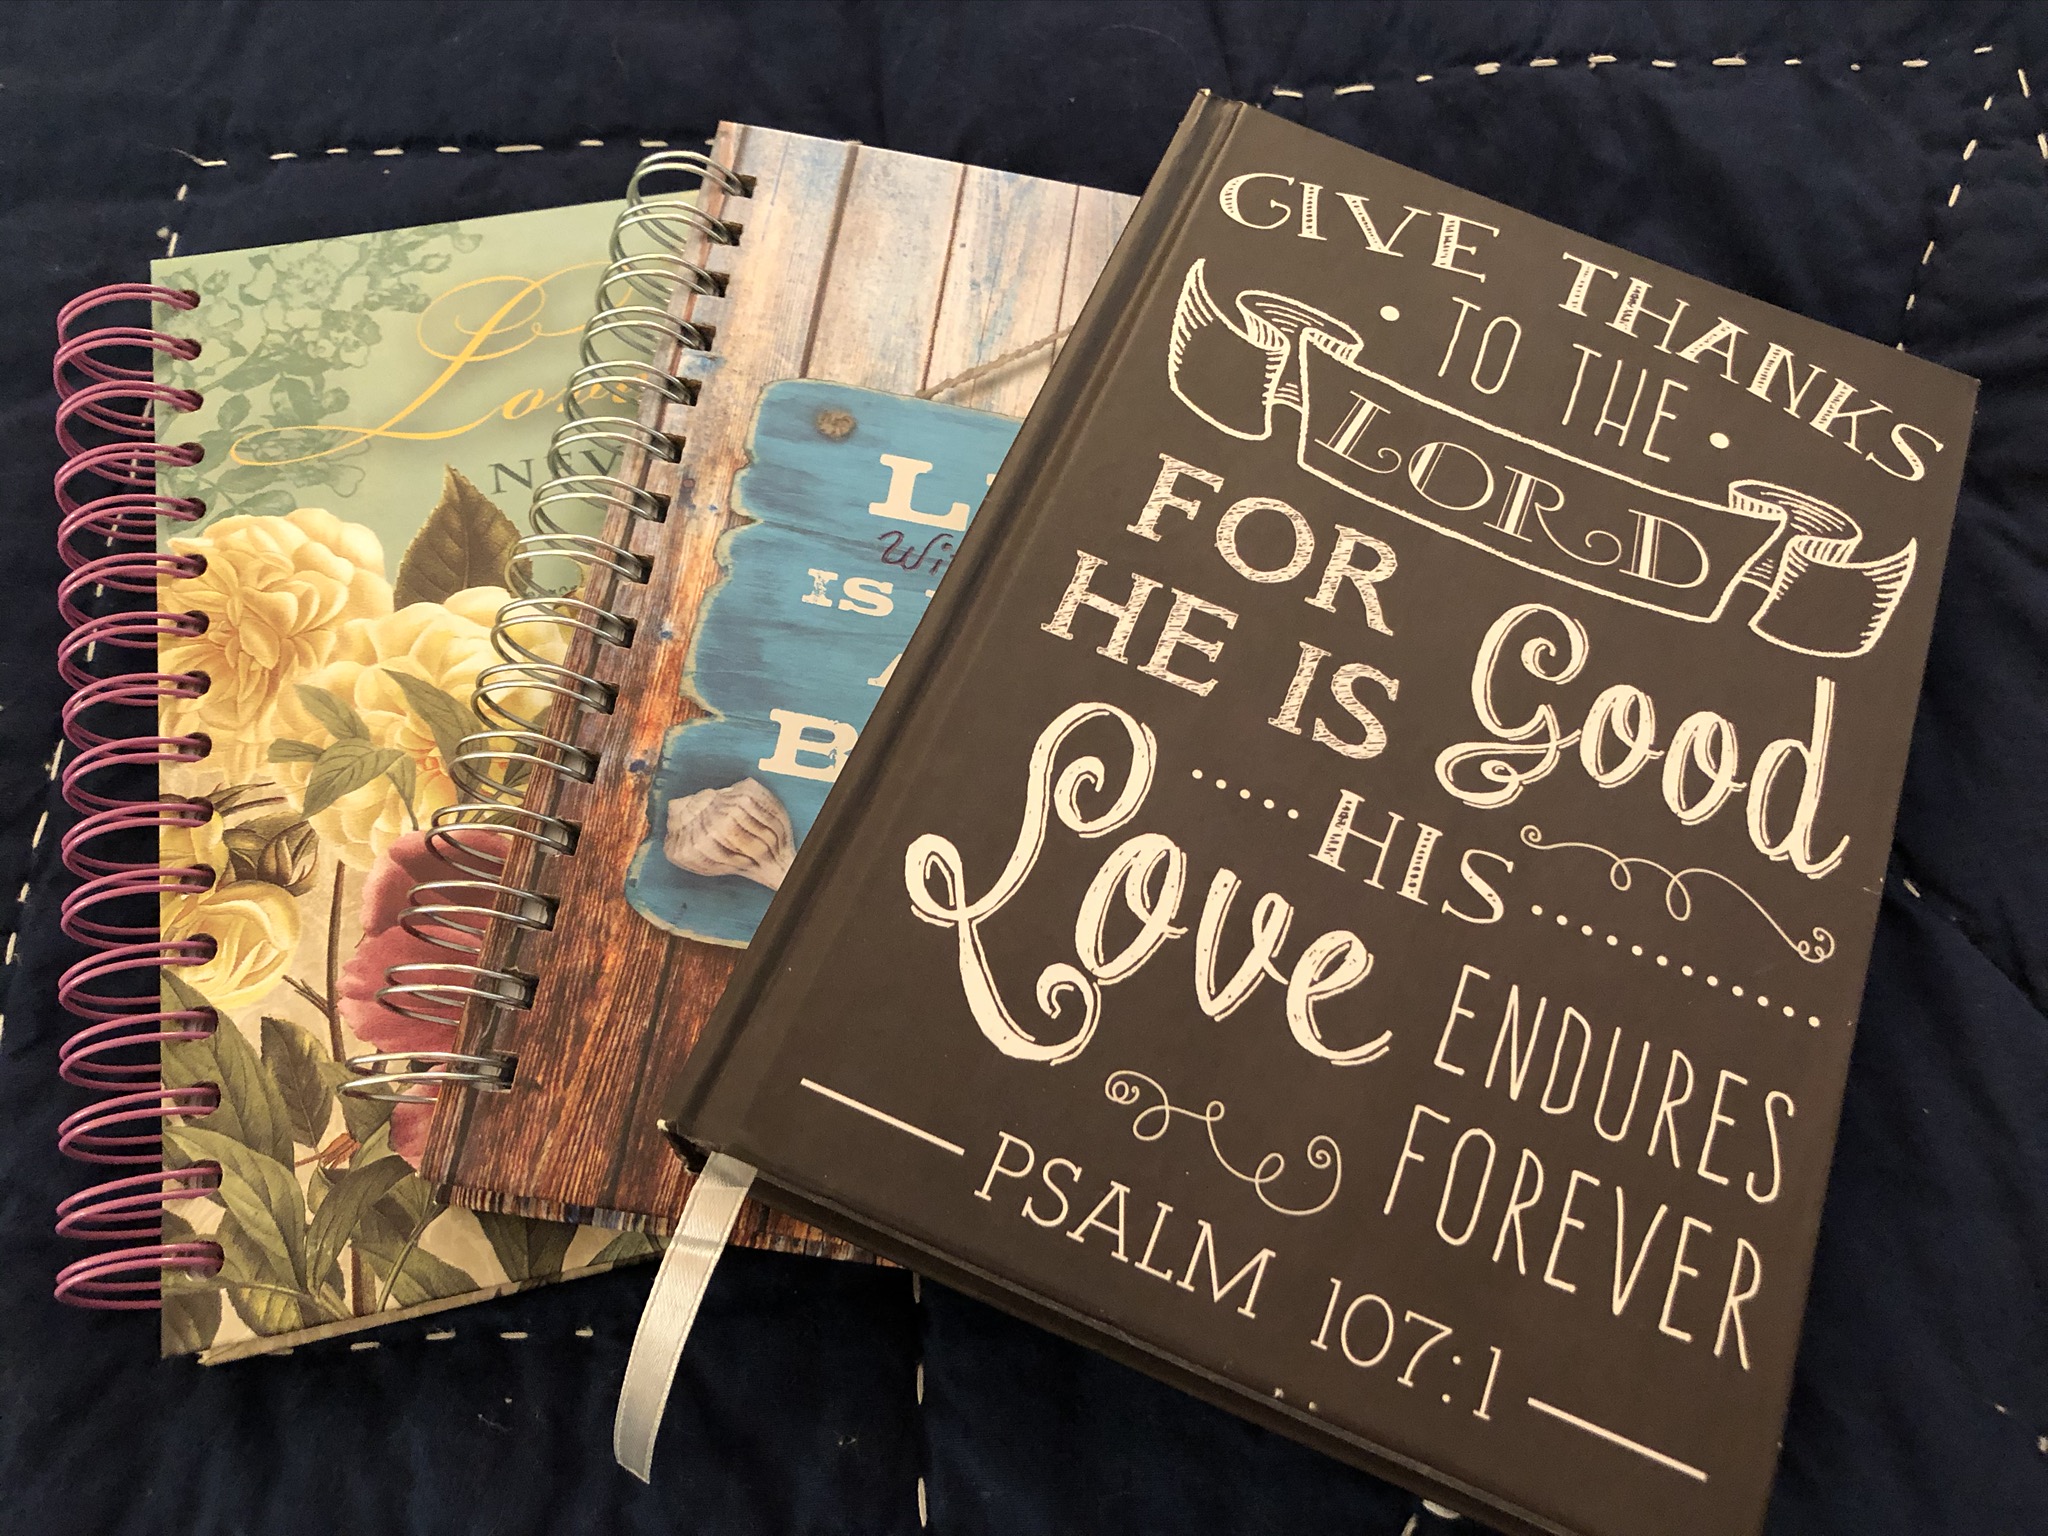 Love
NEV
L
Wi
IS
B
GIVE THANKS
• TO THE •
LORD
FOR
HE IS Good
HIS
Love ENDURES
FOREVER
PSALM 107:1